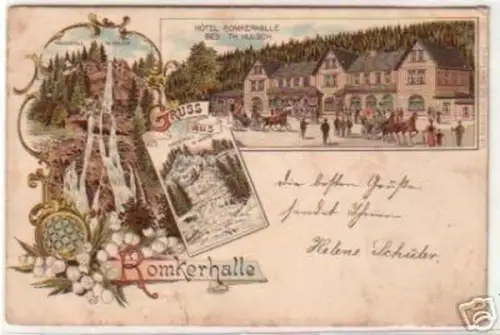 HÔTEL ROMKERHALLE
BES. TH. HÜLSCH
GRUSS
AUS
ROMKERHALLE
Die besten Grüße
sendet Ihnen
Helene Schüler.